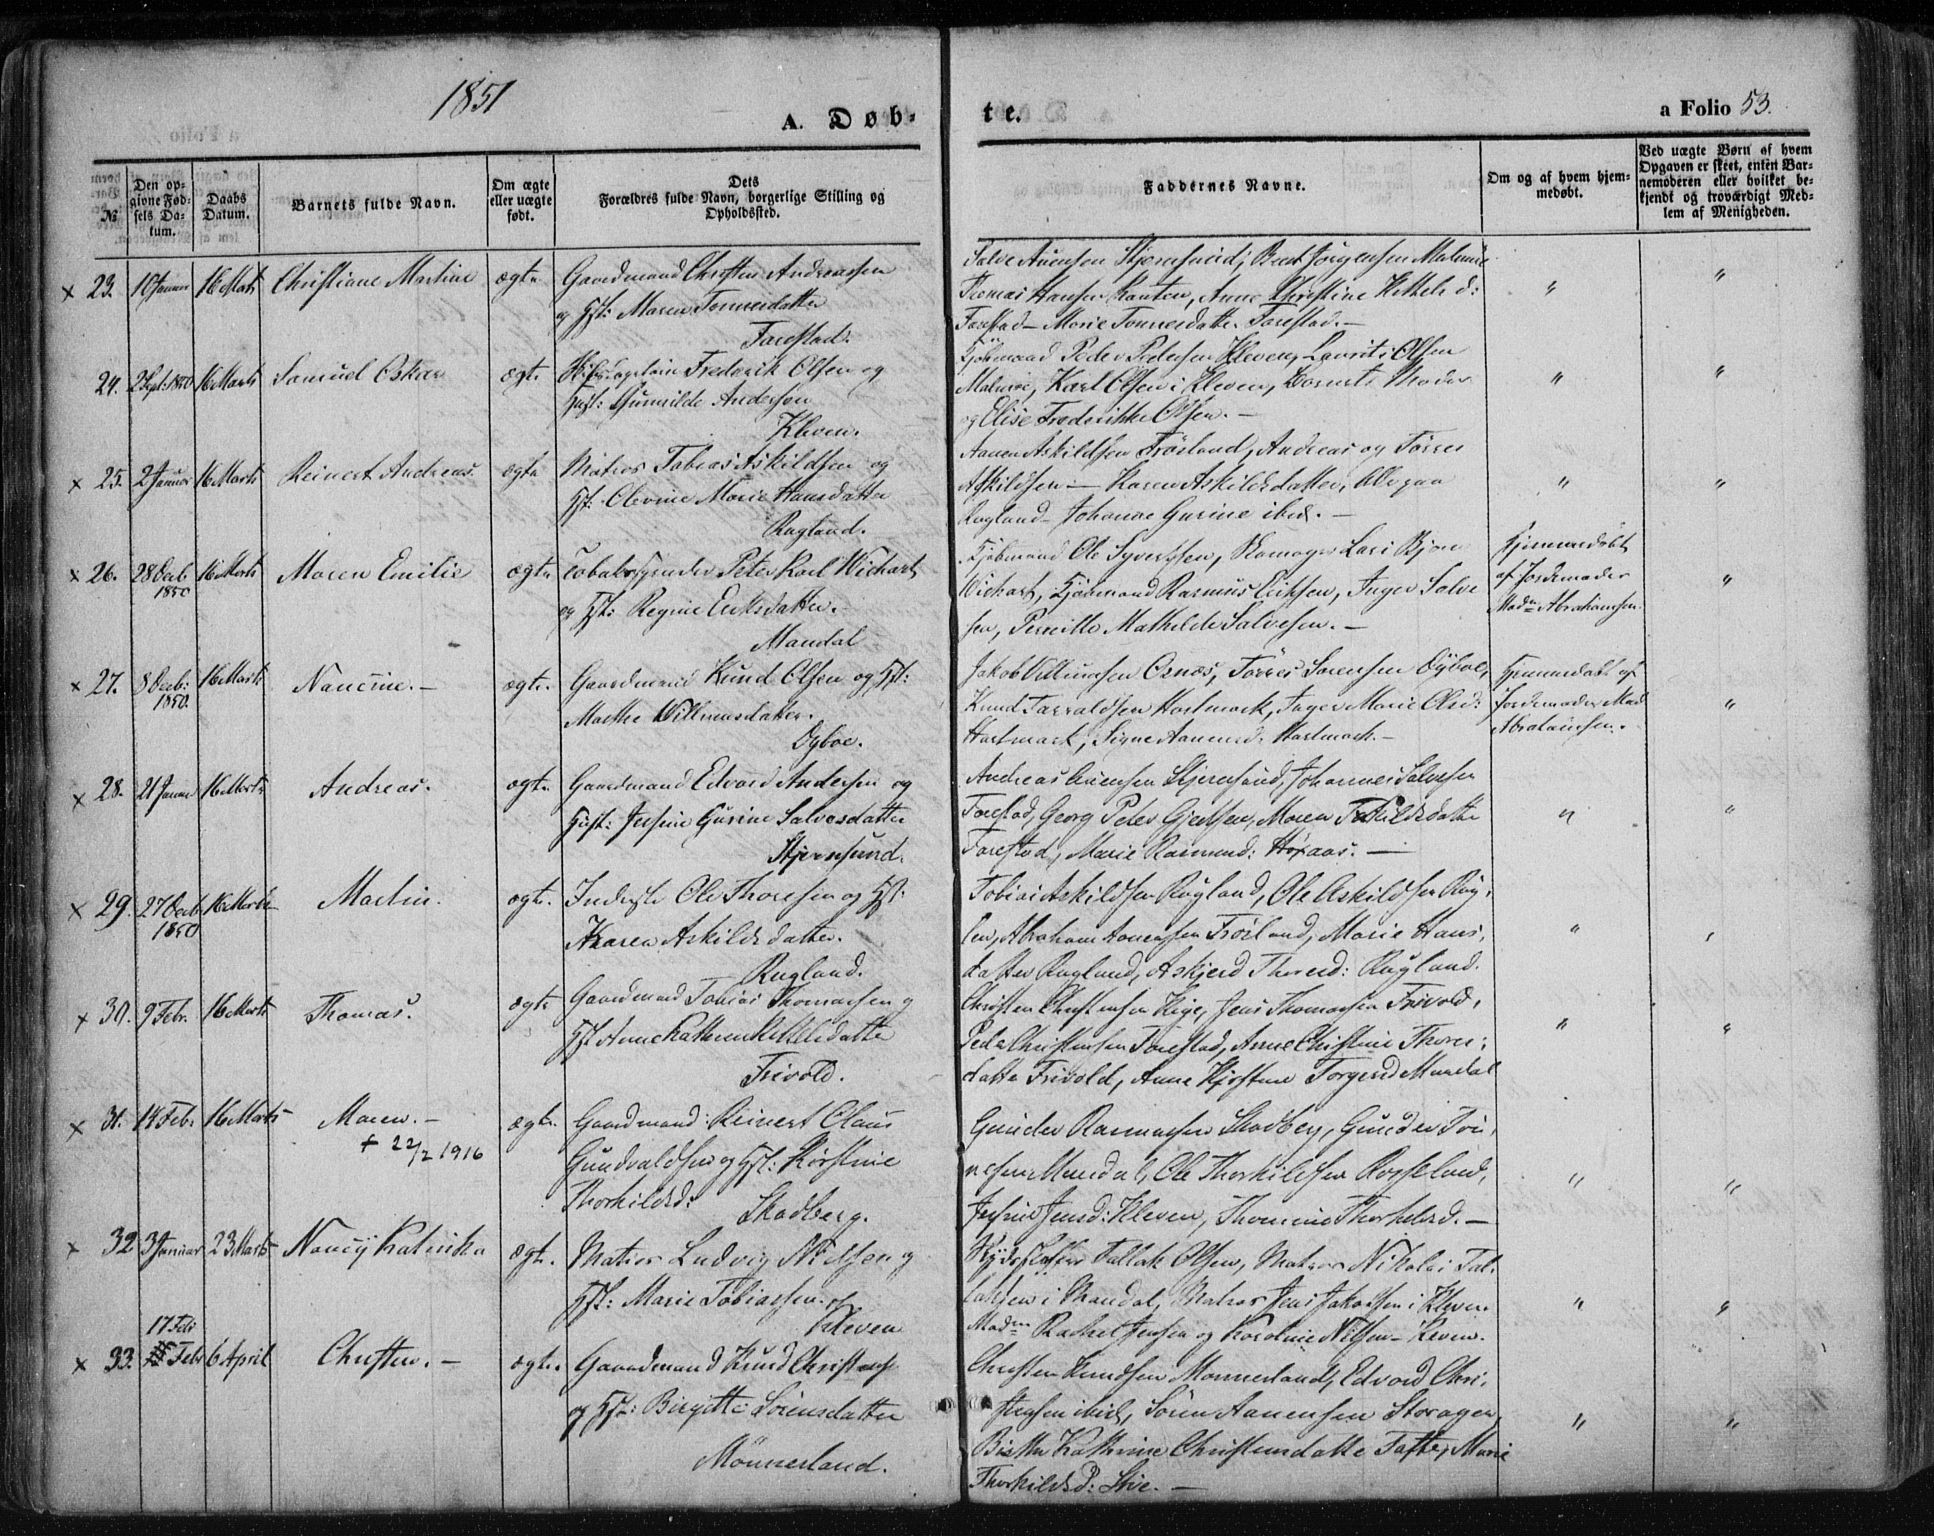 1851
A. Døb-
te.
a Folio 53.
№
Den op-
givne Fød-
sels Da-
tum.
Daabs
Datum.
Barnets fulde Navn.
Om ægte
eller uægte
født.
Dets
Forældres fulde Navn, borgerlige Stilling og
Opholdssted.
Faddernes Navne.
Om og af hvem hjem-
medøbt.
Ved uægte Børn af hvem
Opgaven er skeet, enten Bar-
nemoderen eller hvilket be-
kjendt og troværdigt Med-
lem af Menigheden.
x 23. 10 Januar 16 Marts Christiane Martine ægte Gaardmand Christen Andreassen
og Hst: Maren Tønnesdatter
Farestad.
Salve Aanensen Skjernsund, Bent Jørgensen Malmø
Thomas Hansen Ranten, Anne Christine Kittelsd:
Farestad - Marie Tønnesdatter Farestad. -
" "
24. 2 Sept: 1850 16 Marts Samuel Oskar ægte Skibscaptain Frederik Olsen og
Hust: Gunnilde Andersen
Kleven.
Kjøbmand Peder Pedersen Kleven, Laurits Olsen
Malmø, Karl Olsen i Kleven, Barnets Moder
og Elise Frederikke Olsen. -
" "
x 25. 2 Januar 16 Marts Reinert Andreas. ægte Matros Tobias Askildsen og
Hst: Olevine Marie Hansdatter
Rugland.
Aanen Askildsen Frøsland, Andreas og Tørres
Askildsen - Karen Askildsdatter, alle paa
Rugland - Johanne Gurine ibid. -
" "
x 26. 28 Decb 1850 16 Marts Maren Emilie ægte Tobaksspinder Peter Karl Wichart
og Hst: Regine Eriksdatter. -
Mandal
Kjøbmand Ole Syvertsen, Lars Bjørn
Wichart, Kjøbmand Rasmus Eriksen, Inger Salve
sen, Pernille Mathilde Salvesen. -
Hjemmedøbt
af Jordemoder
Madm Abrahamsen.
"
x 27. 8 Decb: 1850. 16 Marts Nancine. - ægte. Gaardmand Knud Olsen og Hst:
Marthe Willumsdatter.
Øybøe.
Jakob Villumsen Osnæs, Tørres Sørensen Øybøe,
Knud Tarraldsen Hartmark, Inger Marie Olsd:
Hartmark, Signe Aanensd: Hartmark. -
Hjemmedøbt af
Jordemoder Mad
Abrahamsen.
"
x 28. 21 Januar 16 Marts Andreas. ægte. Gaardmand Edvard Andersen og
Hust: Jesine Gurine Salvesdatter
Skjernsund.
Andreas Aanensen Skjernsund, Johannes Salvesen
Farestad, Georg Peter Gjertsen, Maren Taskildsdatter
Farestad, Marie Rasmusd: Høyaas. -
" "
x 29. 27 Decb 1850 16 Marts Martin. ægte. Inderste Ole Thoresen og Hst:
Karen Askildsdatter.
Rugland.
Tobias Askildsen Rugland, Ole Askildsen Røy,
len, Abraham Aanensen Frøsland, Marie Hans,
datter Rugland, Askjerd Thoresd: Rugland.
" ,
x 30. 9 Febr. 16 Marts Thomas. ægte Gaardmand Tobias Thomassen og
Hst Anne Kathrine Kittelsdatter
Frivold.
Christen Christensen Kige, Jens Thomassen Frivold,
Peder Christensen Farestad, Anne Christine Thores:
datter Frivold, Anne Kjerstine Torgersd Mandal
" "
x 31. 14 Febr 16 Marts Maren. -
+ 22/2 1916
ægte. Gaardmand: Reinert Claus
Gundvaldsen og Hst: Kjerstine
Thorkildsd:
Skadberg.
Gunder Rasmussen Skadberg, Gunder Tøn,
nesen Mandal, Ole Thorkildsen Rosseland,
Jesine Jensd: Kleven, Thomine Thorkilsd. -
" "
x 32 3 Januar 23 Marts Nancy Katinka ægte. Matros Ludvig Nielsen og
Hst: Marie Tobiassen. af
Kleven
Skydsskaffer Tallak Olsen, Matros Nikolai Tal.
laksen i Mandal, Matros Jens Jakobsen i Kleven
Madm Rachel Jensen og Karoline Nilsen - Kleven.
" "
x 33. 17 Feb Febr 6 April Christen. - ægte. Gaardmand Knud Christens
og Hst: Birgitte Sørensdatter
Mønnerland.
Christen Knudsen Mønnerland, Edvard Chri,
stensen ibid, Søren Aanensen Storagen
Birthe Kathrine Christensdatter Tofte, Marie
Thorkildsd: Stie. -
" "